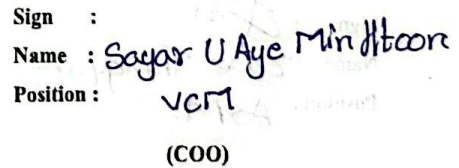 Sign :
Name : Sayar U Aye Min Htoon
Position : VCM
(COO)